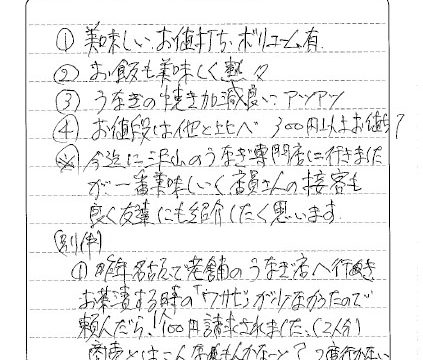 ① 美味しい、お値打ち、ボリューム有
② お飯も美味しく熱々
③ うなぎの焼き加減良い、アツアツ
④ お値段は他と比べ 300円以上お値打
※ 今迄に沢山のうなぎ専門店に行きました
が一番美味しいく店員さんの接客も
良く友達にも紹介したく思います
(別件)
① 昨年名古屋で老舗のうなぎ店へ行き
お茶漬する時の「ワサビ」が少なかったので
頼んだら、100円請求されました、(2人分)
商売とはこんな